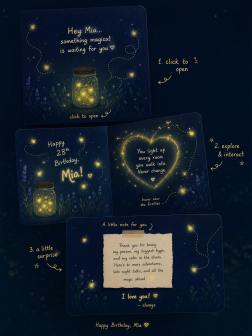 Hey Mia...
something magical
is waiting for you
click to open
1. click to
open
Happy
28th
Birthday,
Mia!
You light up
every room
you walk into.
Never change.
2. explore
& interact
hover near
the fireflies
3. a little
surprise
A little note for you
Thank you for being
my person, my biggest hype,
and my calm in the chaos.
Here's to more adventures,
late night talks, and all the
magic ahead.
I love you!
– always
Happy Birthday, Mia